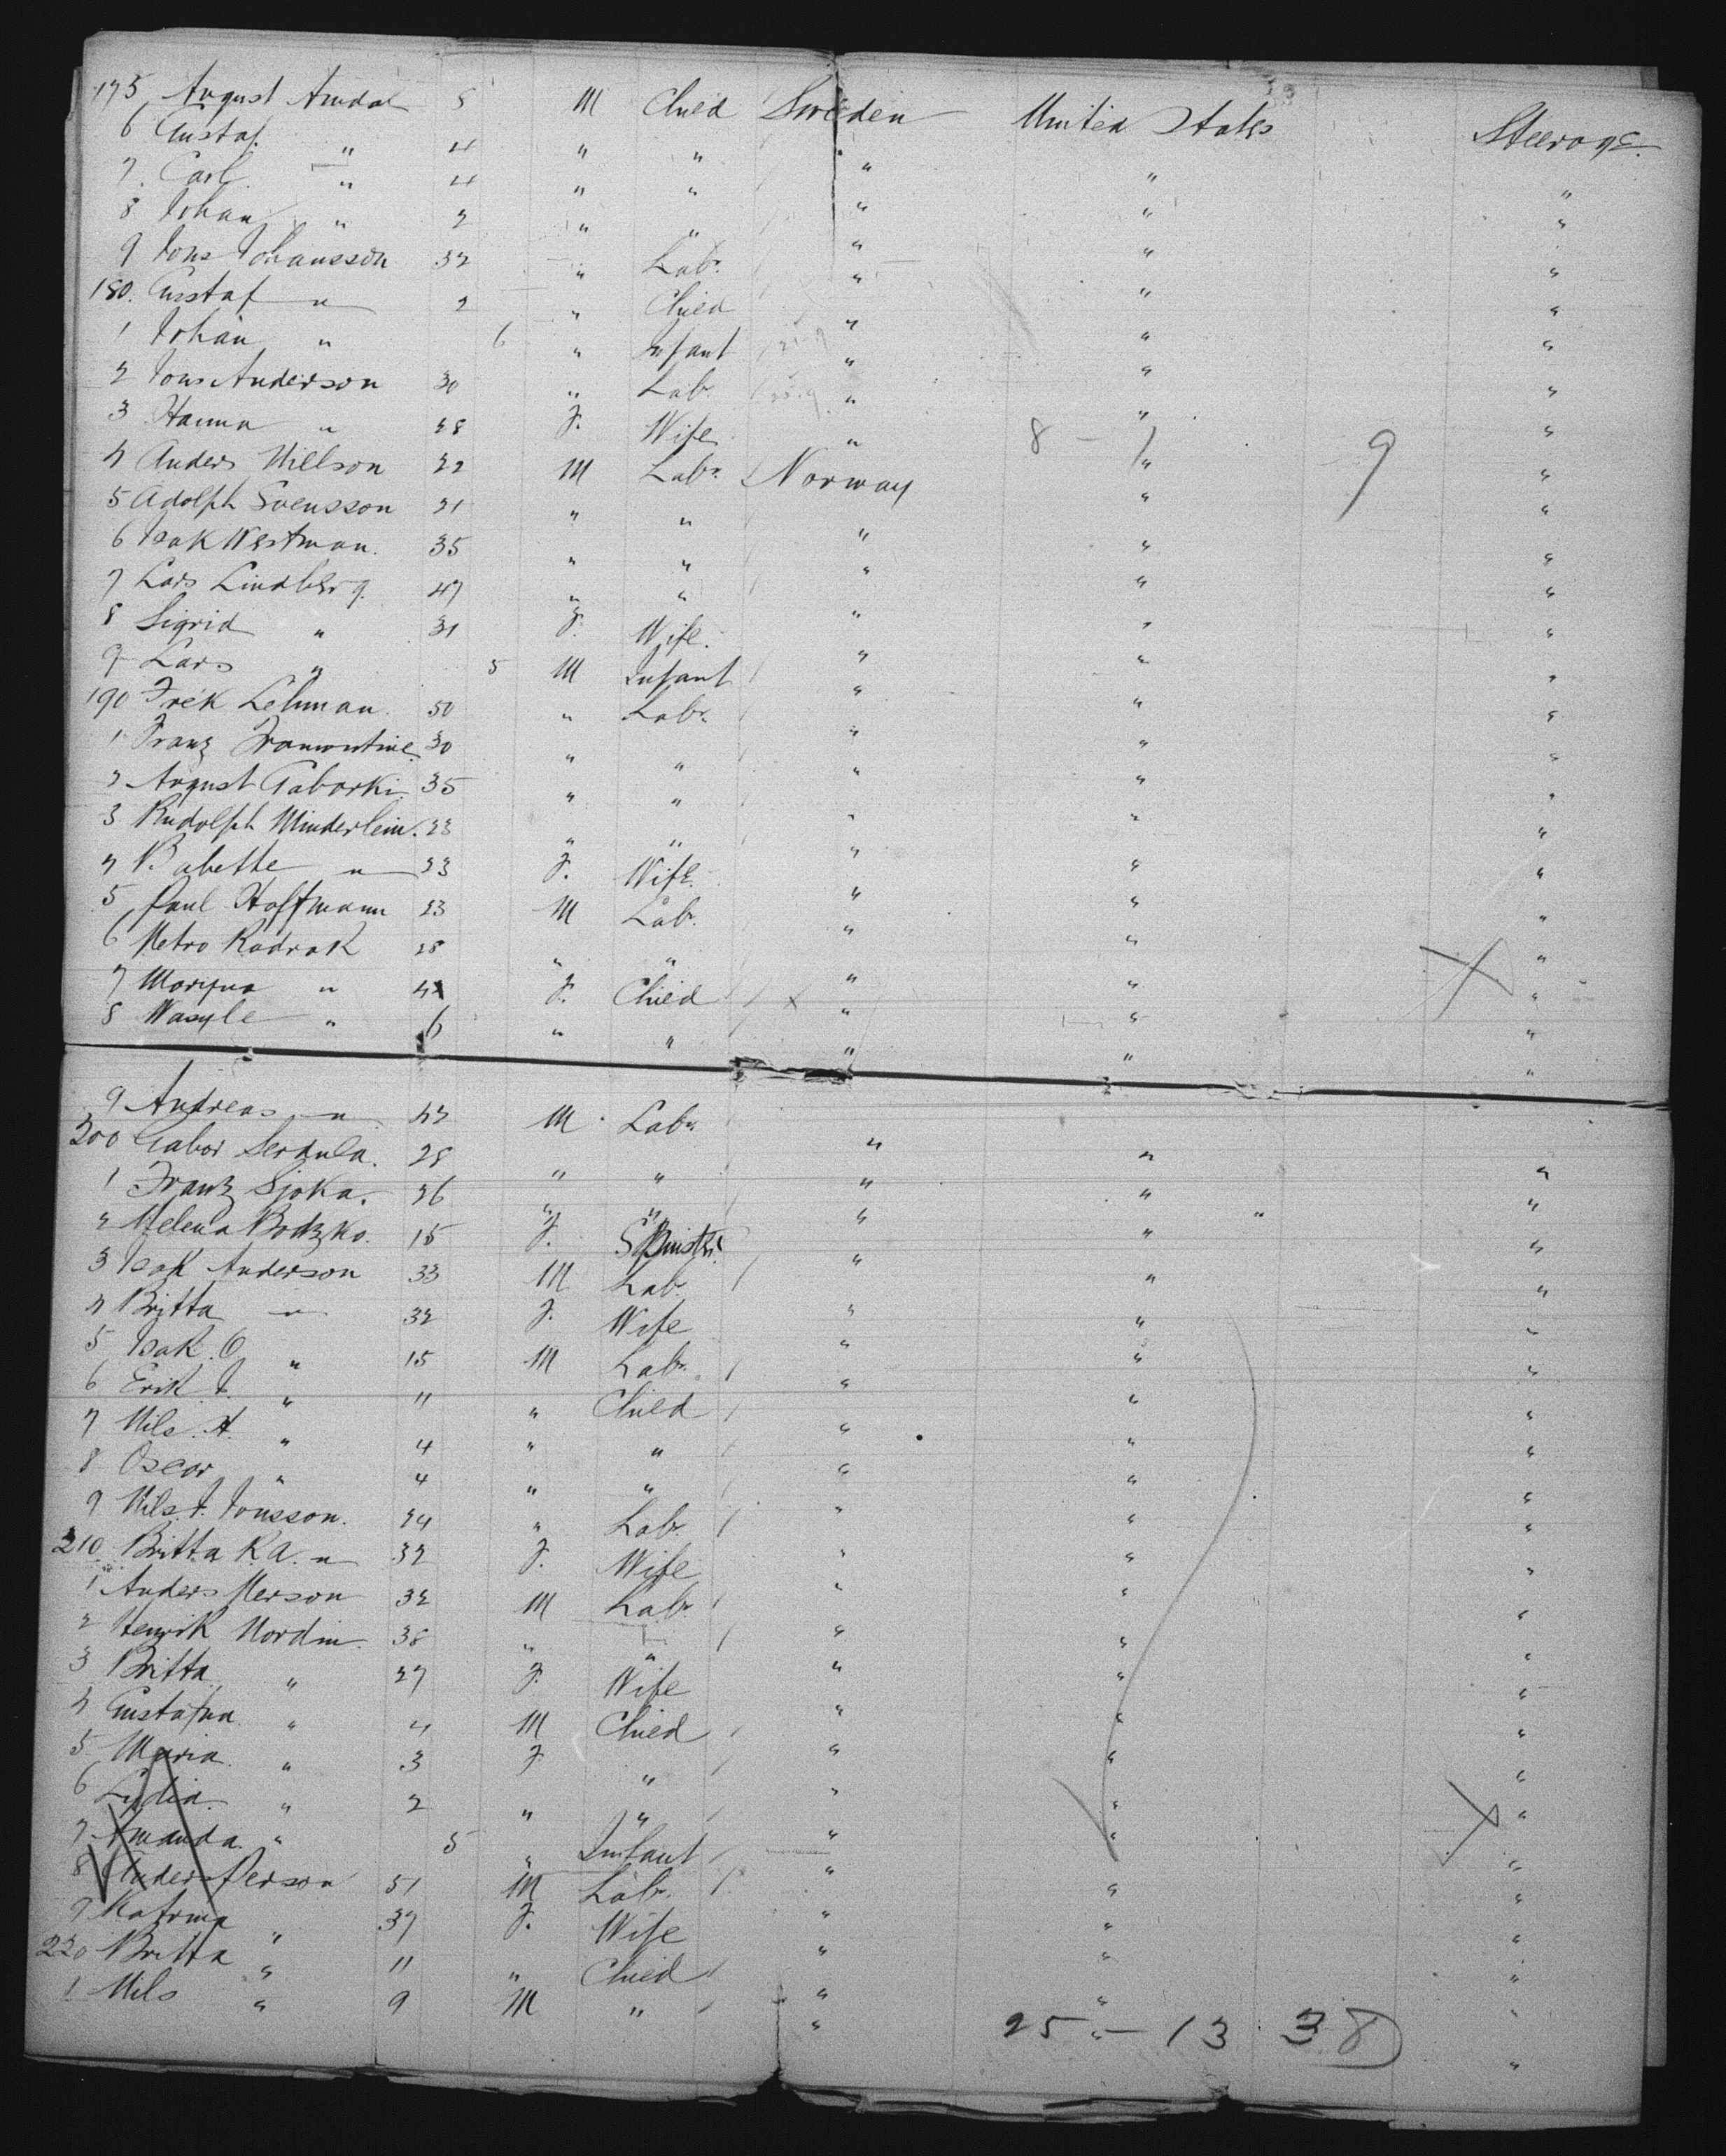 175 August Amdal 8 M Child Sweden United States Steerage
6 Gustaf " 4 " " " " "
7 Carl " 4 " " " " "
8 Johan " 2 " " " " "
9 Jons Johansson 32 " Labr. " " "
180. Gustaf " 2 " Child " " "
1 Johan " 6 " Infant " " "
2 Jons Anderson 30 " Labr. " " "
3 Hanna " 28 F. Wife " " "
8 - 1 9
4 Anders Nillson 22 M Labr. Norway " "
5 Adolph Svensson 21 " " " " "
6 Isak Westman. 35 " " " " "
7 Lars Lindberg. 47 " " " " "
8 Sigrid " 31 F. Wife. " " "
9 Lars " 5 M Infant " " "
190 Frek Lehman. 50 " Labr. " " "
1 Franz 30 " " " " "
2 August Gaborki. 35 " " " " "
3 Rudolph Minderlein. 23 " " " " "
4 Babette " 23 F. Wife. " " "
5 Paul Hoffmann 23 M Labr. " " "
6 Metro Kodrak 28 " " " " "
7 Maryna " 4 F. Child x " " "
8 Wasyle " 6 " " " " "
9 Andreas " 42 M Labr. " " "
200 Gabor Serdula. 28 " " " " "
1 Franz Sjoka. 26 " " " " "
2 Helena Bodzko. 15 F. Spinstr. " " "
3 Isak Anderson 33 M Labr. " " "
4 Britta " 32 F. Wife " " "
5 Isak. O. " 15 M Labr. " " "
6 Erik J. " 11 " Child " " "
7 Nils. A. " 4 " " " " "
8 Oscar " 4 " " " " "
9 Nils. J. Jonsson. 24 " Labr. " " "
210 Britta K. A. " 32 F. Wife " " "
1 Anders Merson 32 M Labr. " " "
2 Henrik Nordin. 38 " " " " "
3 Britta " 27 F. Wife " " "
4 Gustafva " 4 M Child " " "
5 Maria. " 3 F. " " " "
6 Lydia. " 2 " " " " "
7 Amanda. " 5 " Infant " " "
8 Anders Person 51 M Labr. " " "
9 Katrina " 37 F. Wife " " "
220 Britta " 11 " Child " " "
1 Nils " 9 M " " " "
25 - 13 38